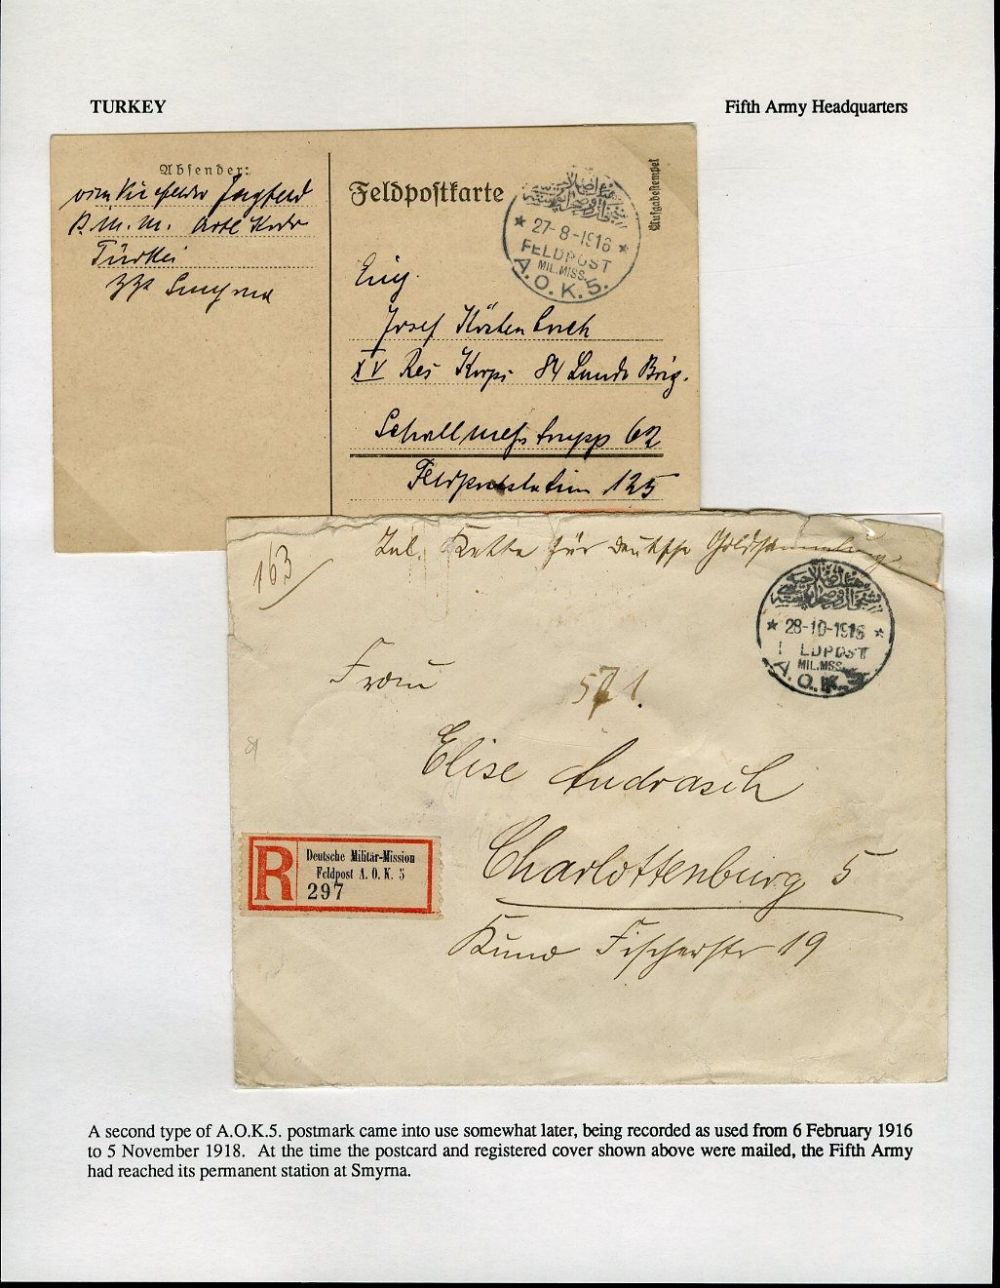 TURKEY
Fifth Army Headquarters
Absender:
Türkei
Smyrna
Feldpostkarte
Aufgabestempel
* 27-8-1916 *
FELDPOST
MIL.MISS.
A.O.K.5.
Josef
XV Res Korps 84 Landw Brig.
Schallmesstrupp 62
Feldpoststation 125
163
Inl. Kette für deutsche Goldsammlung
* 28-10-1916 *
LDPOST
MIL.MSS.
A.O.K.
Frau
571.
Elise Andrasch
Charlottenburg 5
Kuno Fischerstr 19
R
Deutsche Militär-Mission
Feldpost A. O. K. 5
297
A second type of A.O.K.5. postmark came into use somewhat later, being recorded as used from 6 February 1916
to 5 November 1918. At the time the postcard and registered cover shown above were mailed, the Fifth Army
had reached its permanent station at Smyrna.